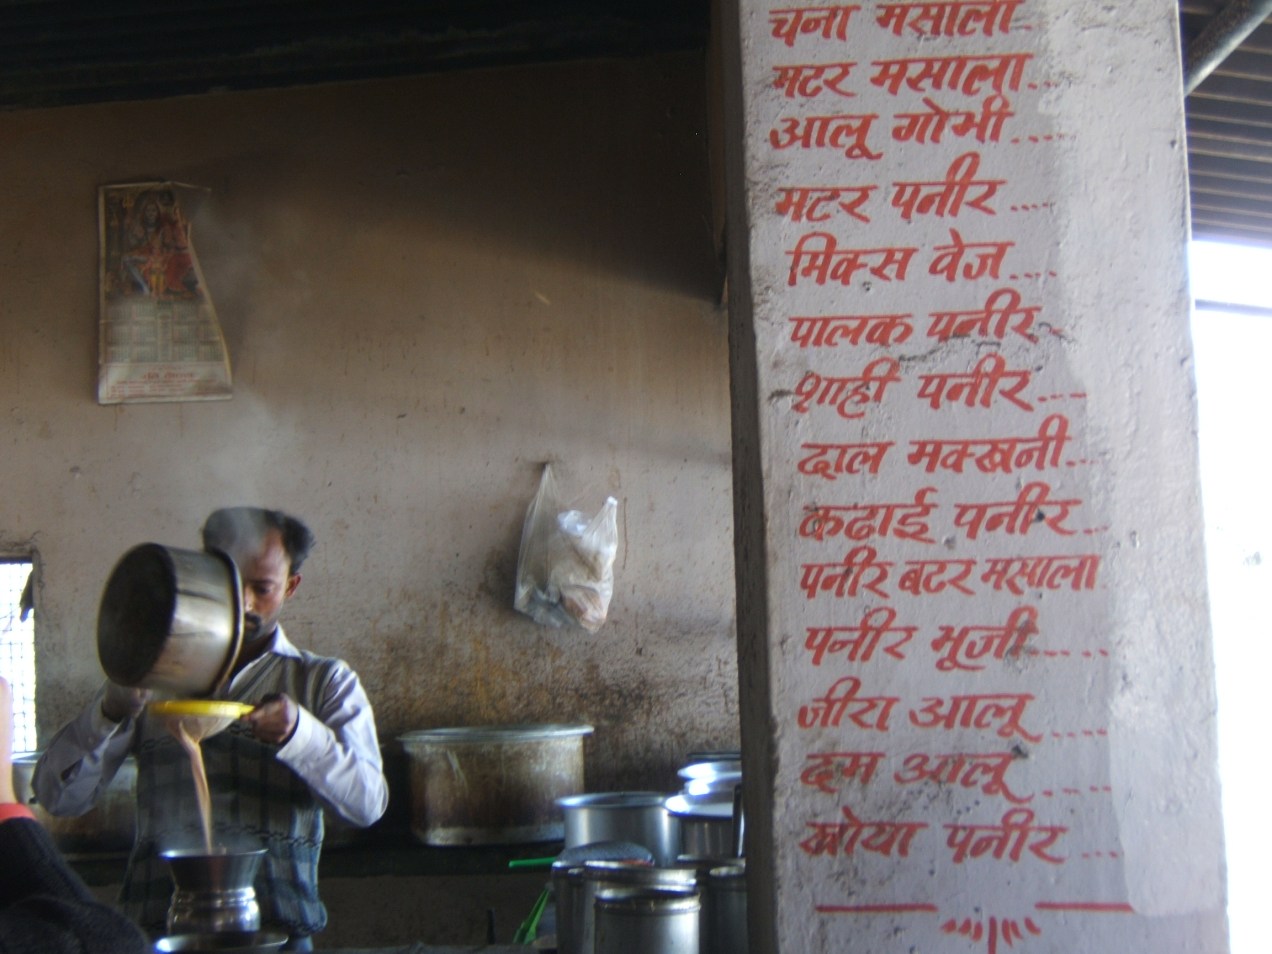 चना मसाला..
मटर मसाला...
आलू गोभी....
मटर पनीर....
मिक्स वेज....
पालक पनीर..
शाही पनीर....
दाल मक्खनी...
कढाई पनीर...
पनीर बटर मसाला
पनीर भूर्जी......
जीरा आलू.....
दम आलू......
खोया पनीर....